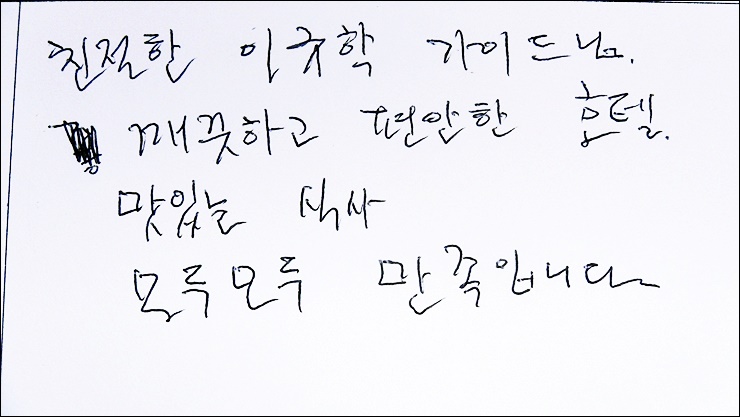 친절한 이규학 가이드님.
깨끗하고 편안한 호텔.
맛있는 식사
모두모두 만족입니다